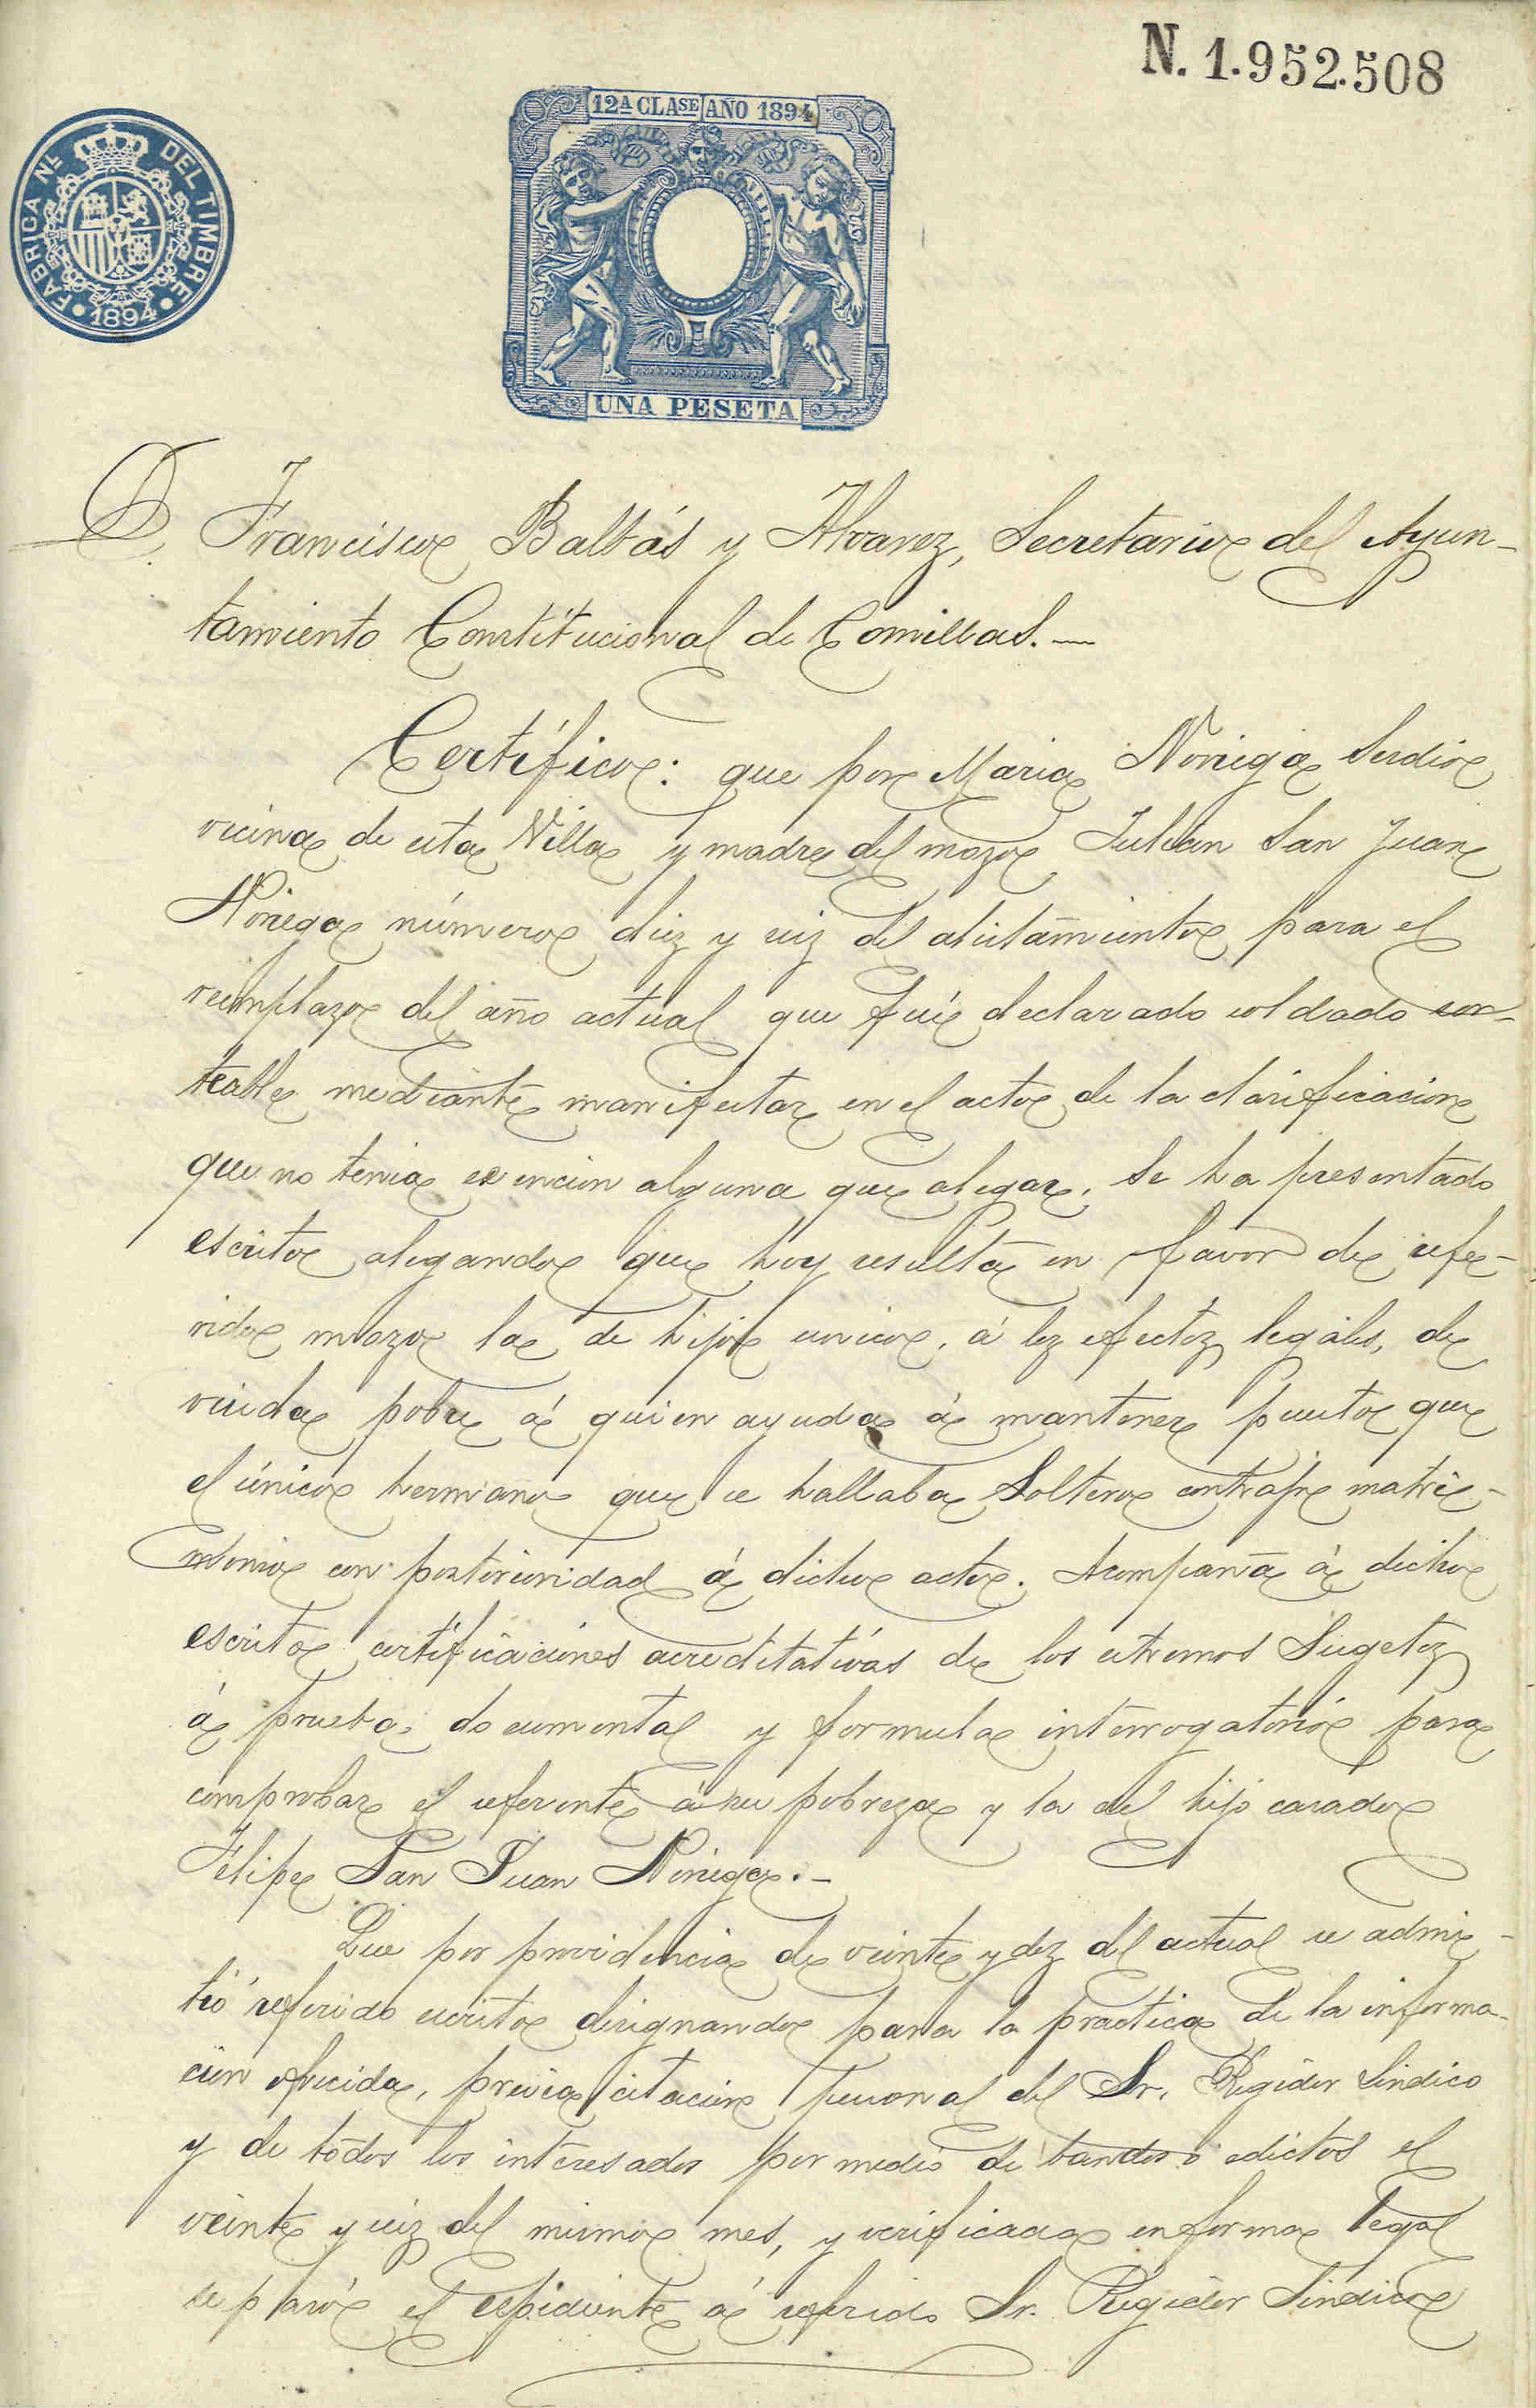 N. 1.952.508
FABRICA NL. DEL TIMBRE
1894
12A CLASE AÑO 1894
UNA PESETA
D. Francisco Balbás y Alvarez, Secretario del Ayun-
tamiento Constitucional de Comillas.—
Certífico: que por Maria Noriega Serdio
vecina de esta Villa y madre del mozo Julian San Juan
Noriega número diez y seis del alistamiento para el
reemplazo del año actual que fué declarado soldado sor-
teable mediante manifestar en el acto de la clasificacion
que no tenia exencion alguna que alegar, se ha presentado
escrito alegando que hoy resulta en favor de refe-
rido mozo la de hijo unico, á los efectos legales, de
viuda pobre á quien ayuda á mantener puesto que
el único hermano que se hallaba soltero contrajo matri-
monio con posterioridad á dicho acto. Acompaña á dicho
escrito certificaciones acreditativas de los estremos sugetos
á prueba documental y formula interrogatorio para
comprobar el referente á su pobreza y la del hijo casado
Felipe San Juan Noriega.-
Que por providencia de veinte y dos del actual se admi-
tió referido escrito designando para la practica de la informa-
cion ofrecida, previa citacion personal del Sr. Regidor Sindico
y de todos los interesados por medio de bandos ó edictos el
veinte y seis del mismo mes, y verificada en forma legal
se pasó el espediente á referido Sr. Regidor Sindico